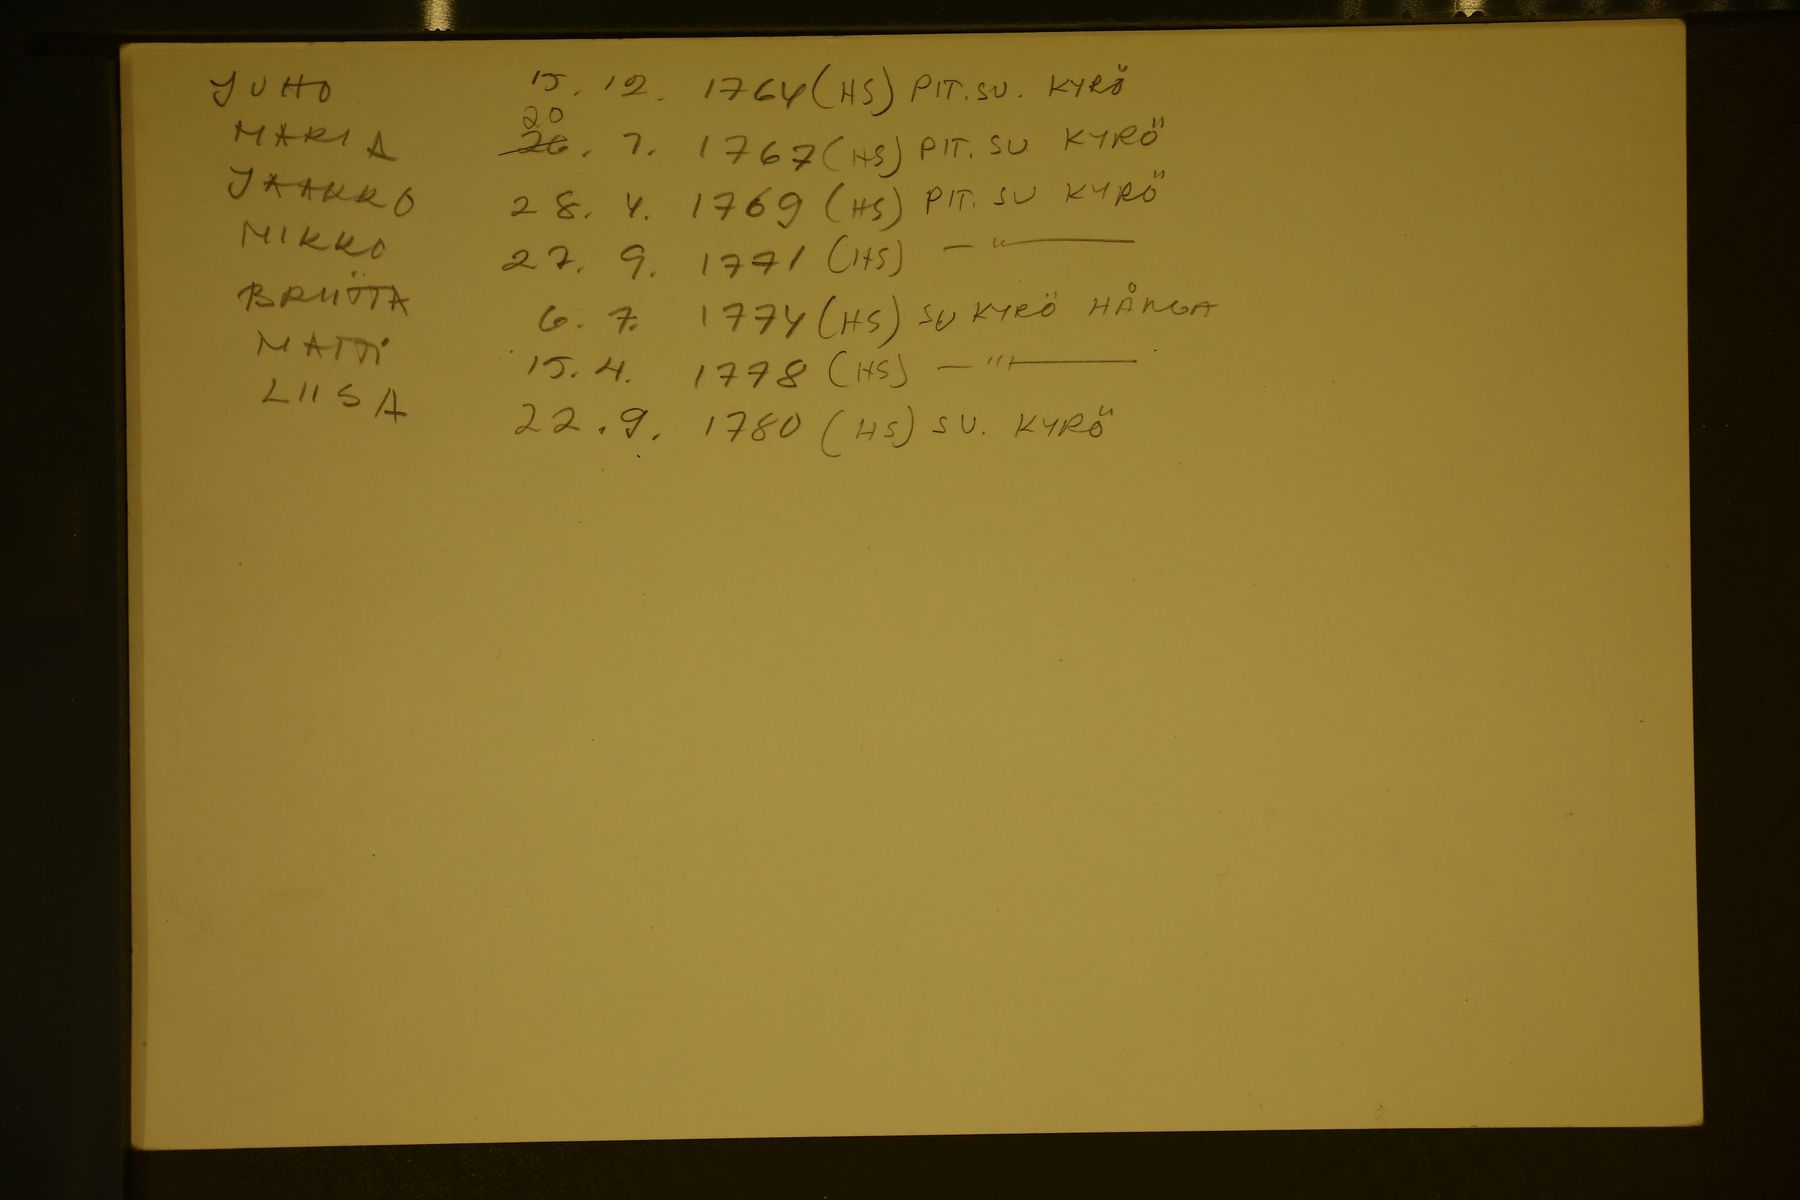 JUHO 15. 12. 1764 (HS) PIT. SU. KYRÖ
MARIA 26. 20 7. 1767 (HS) PIT. SU KYRÖ
JAAKKO 28. 4. 1769 (HS) PIT. SU KYRÖ
MIKKO 27. 9. 1771 (HS) — " —
BRIITTA 6. 7. 1774 (HS) SU KYRÖ HÅNGA
MATTI 15. 4. 1778 (HS) — " —
LIISA 22. 9. 1780 (HS) SU. KYRÖ